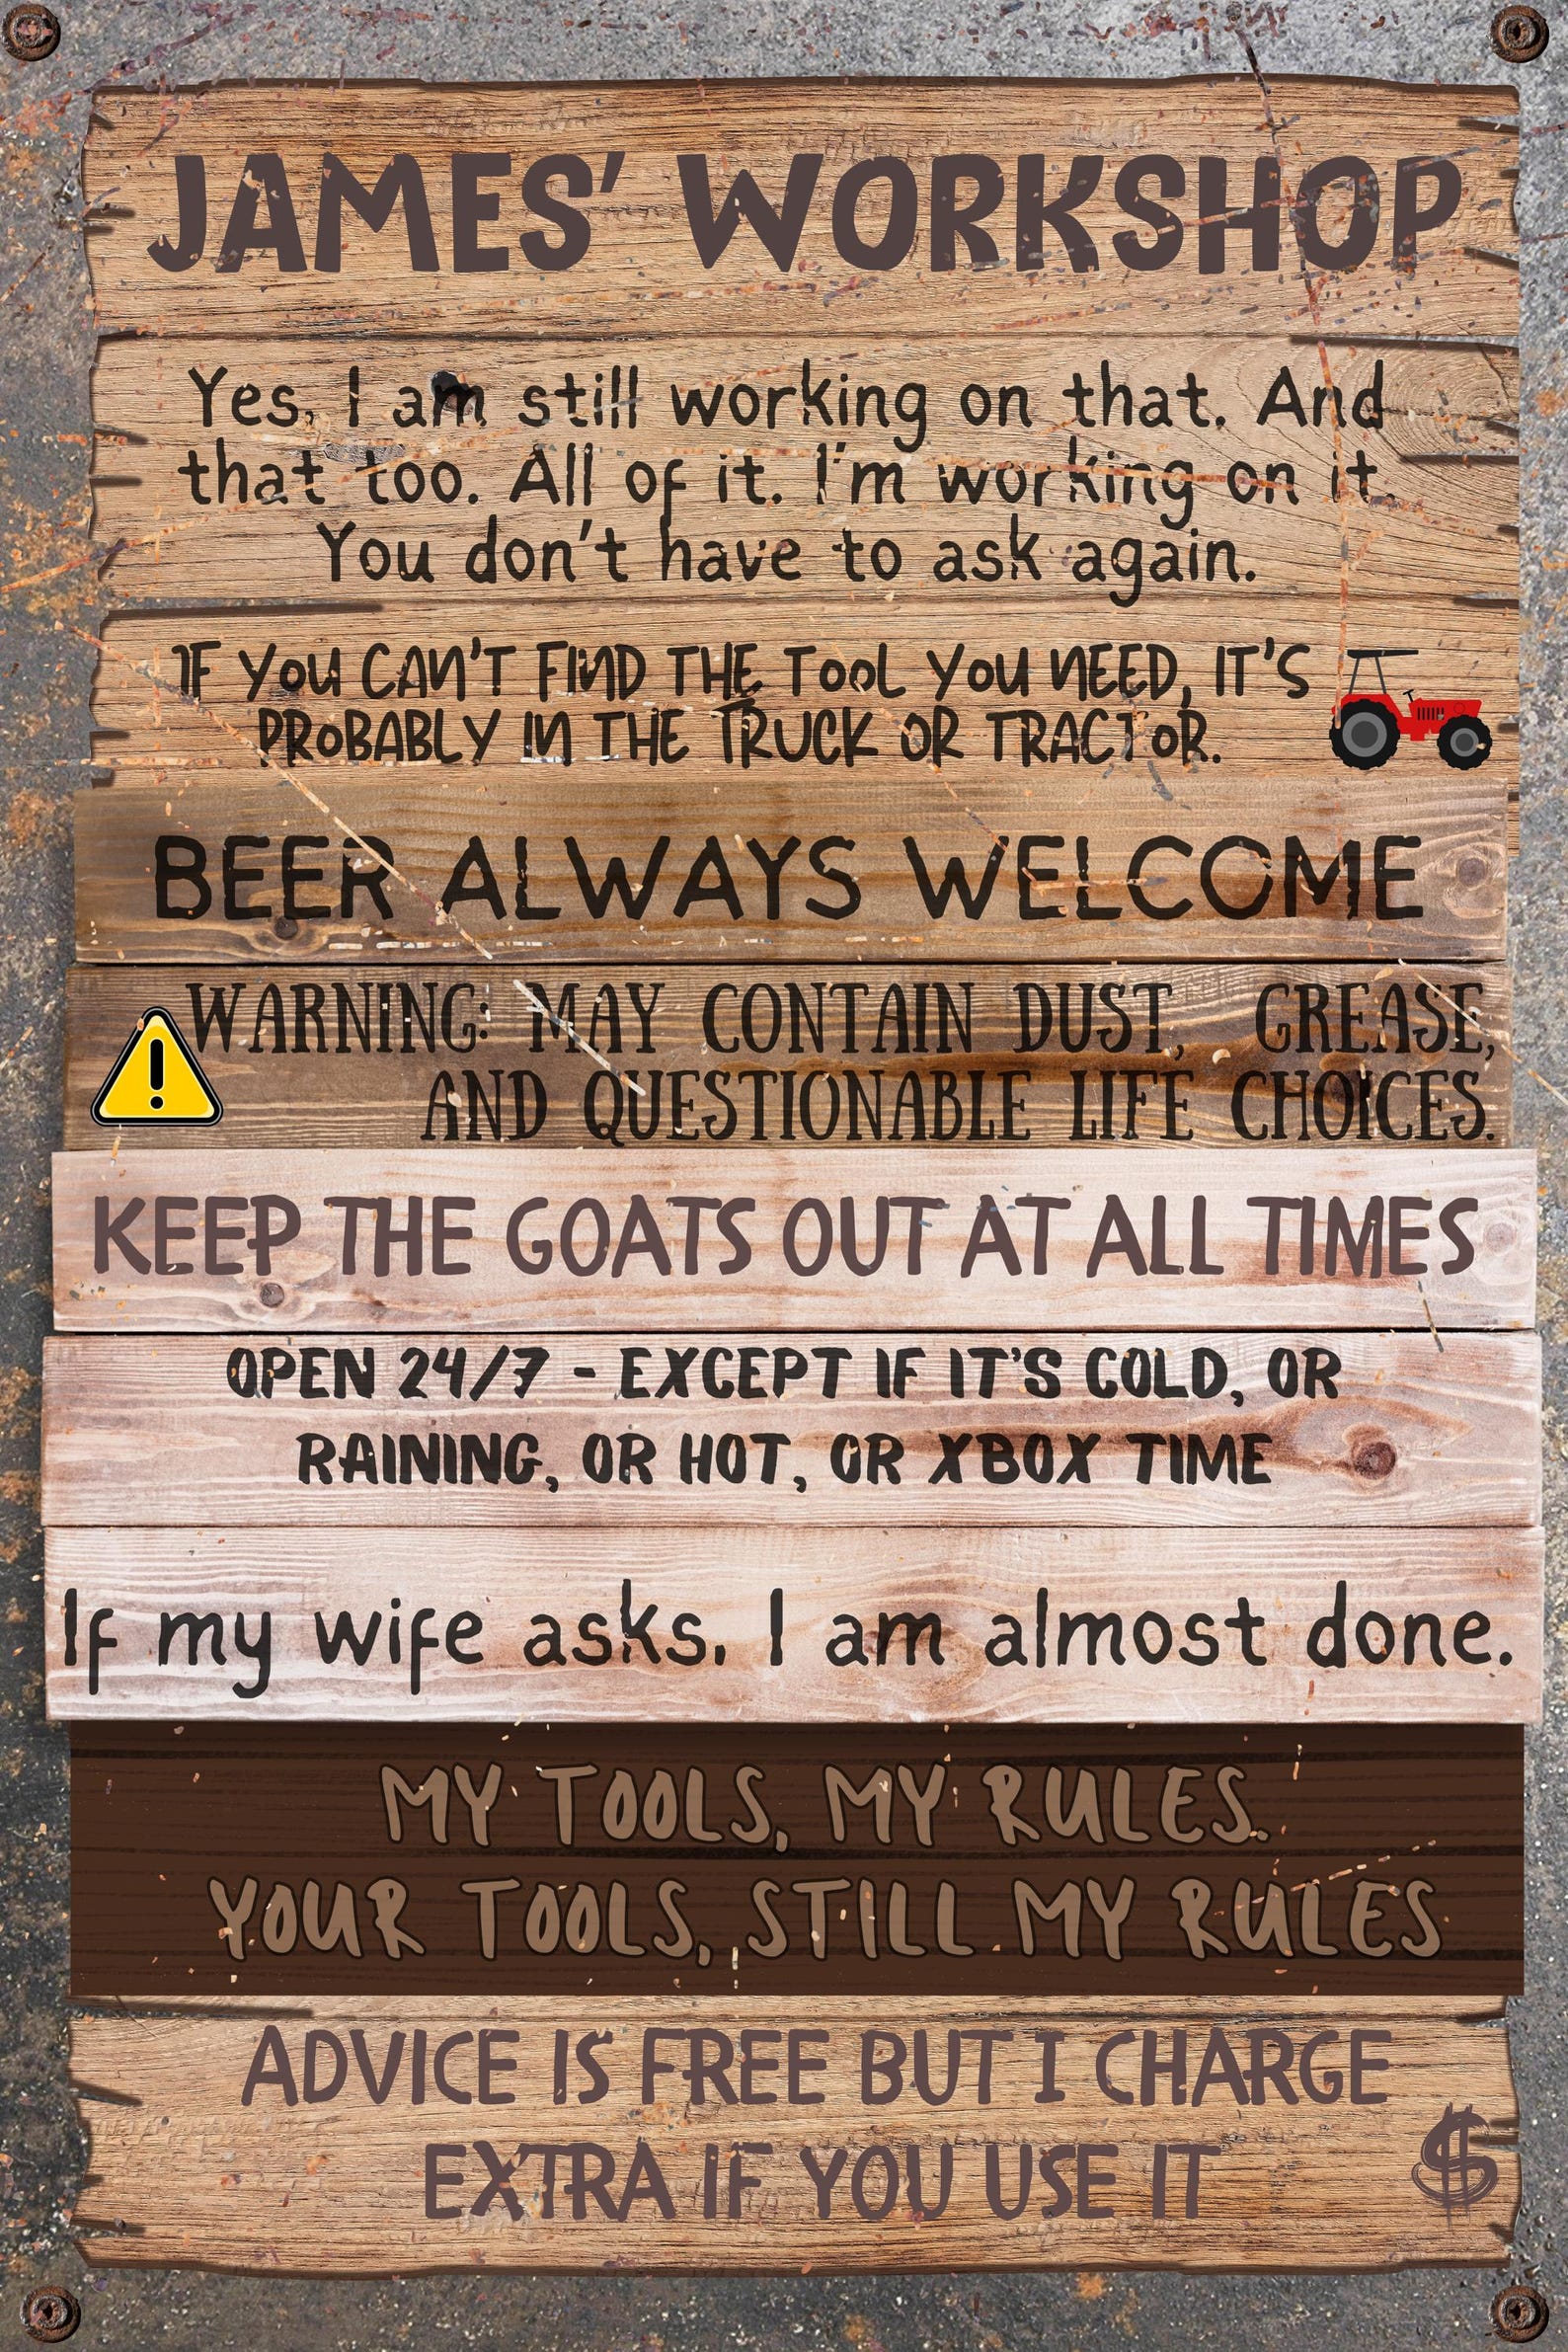 JAMES' WORKSHOP
Yes, I am still working on that. And
that too. All of it. I'm working on it.
You don't have to ask again.
IF YOU CAN'T FIND THE TOOL YOU NEED, IT'S
PROBABLY IN THE TRUCK OR TRACTOR.
BEER ALWAYS WELCOME
WARNING: MAY CONTAIN DUST, GREASE,
AND QUESTIONABLE LIFE CHOICES.
KEEP THE GOATS OUT AT ALL TIMES
OPEN 24/7 - EXCEPT IF IT'S COLD, OR
RAINING, OR HOT, OR XBOX TIME
If my wife asks, I am almost done.
MY TOOLS, MY RULES.
YOUR TOOLS, STILL MY RULES
ADVICE IS FREE BUT I CHARGE
EXTRA IF YOU USE IT
$